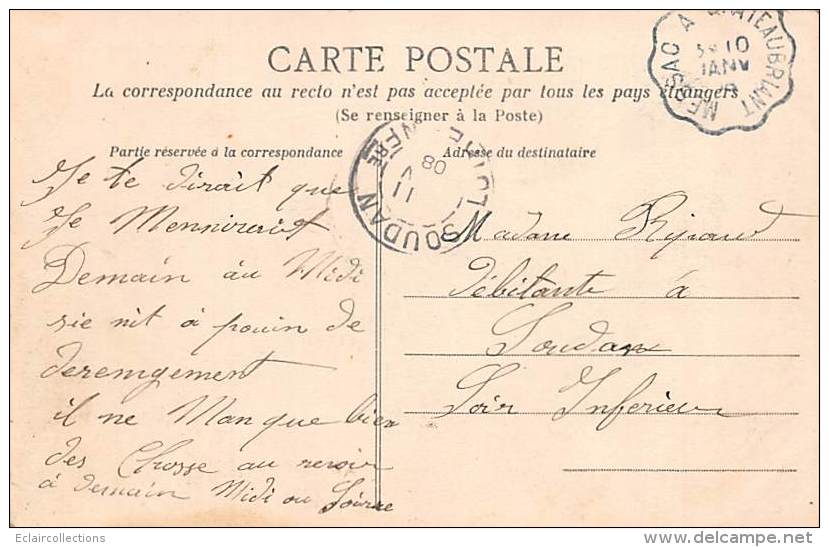 CARTE POSTALE
La correspondance au recto n'est pas acceptée par tous les pays étrangers
(Se renseigner à la Poste)
Partie réservée à la correspondance
Adresse du destinataire
MESSAC A CHATEAUBRIANT
10
JANV
SOUDAN
11
08
LOIRE
Je te dirait que
Je Mennirerit
Demain au Midi
sie nit à pouin de
deremgement
il ne Manque bien
des Chosse au revoir
à demain Midi ou Soirae
Madame
Débitante à
Soudan
Loir Inferieur
Eclaircollections
www.delcampe.net